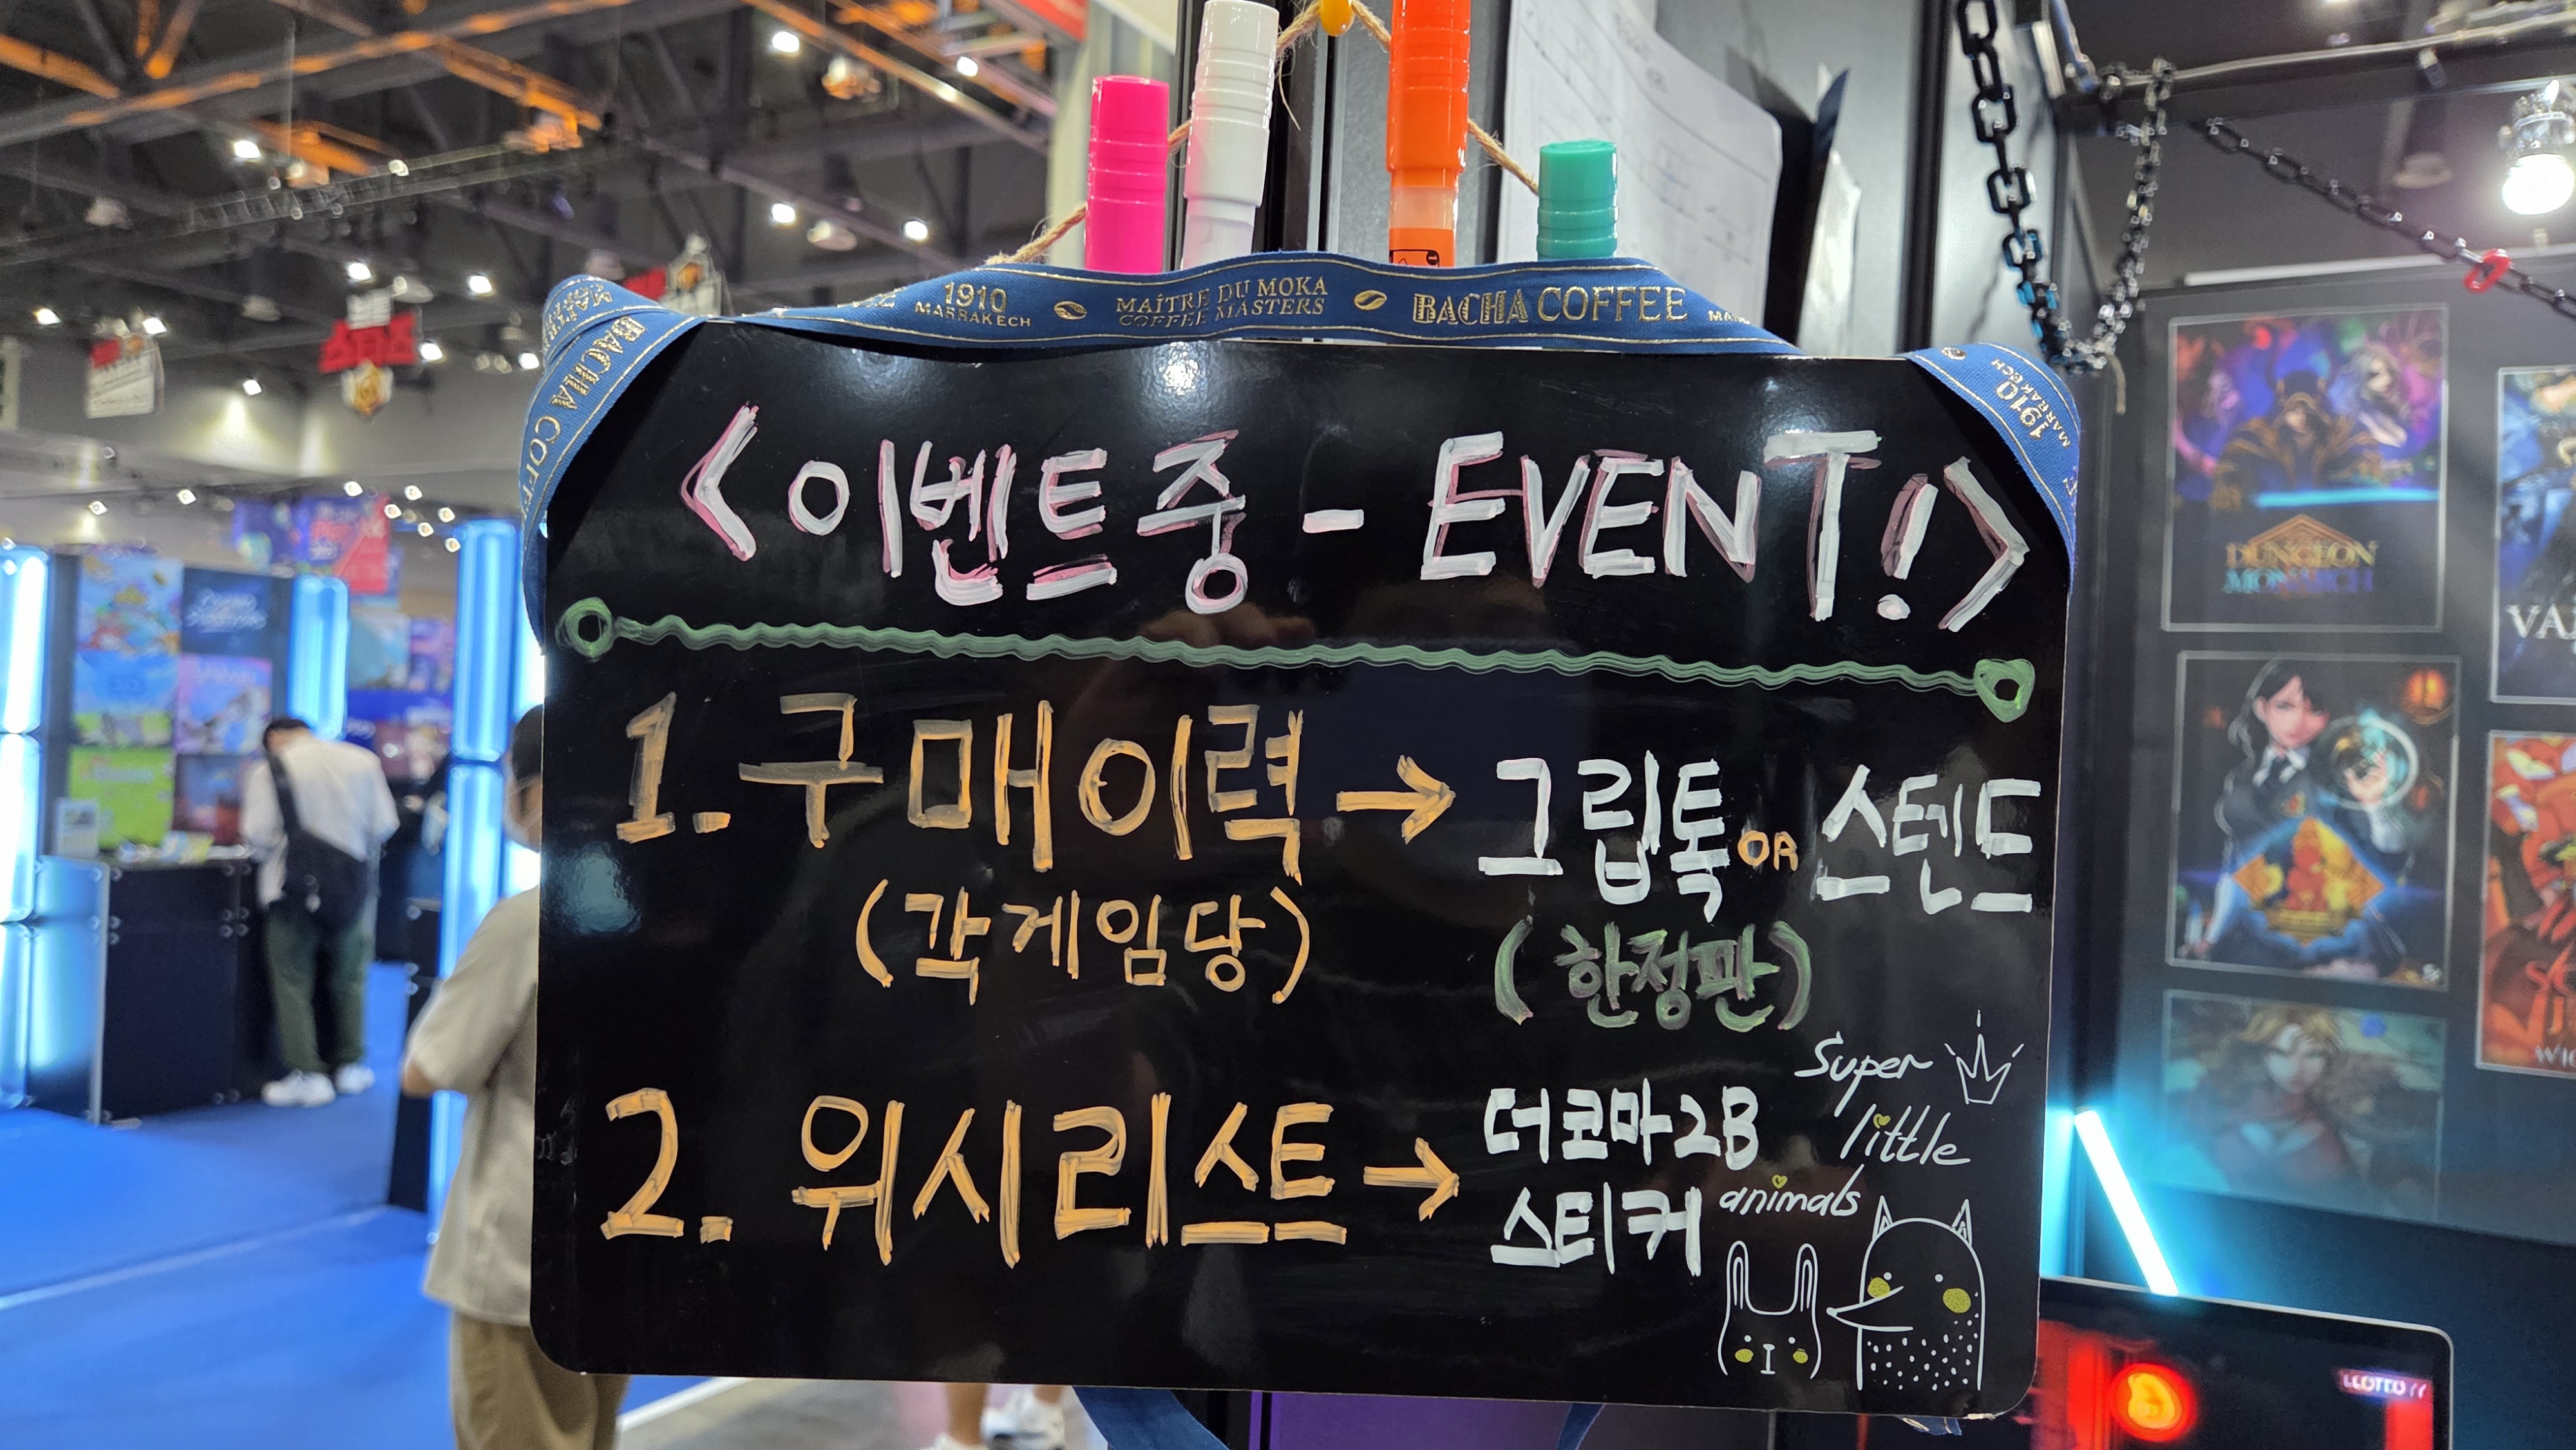 1910
MARRAKECH
MAÎTRE DU MOKA
COFFEE MASTERS
BACHA COFFEE
BACHA COFFE
1910
MARRAKECH
<이벤트중 - EVENT!>
1. 구매이력 → 그립톡 OR 스텐드
(각게임당)
(한정판)
2. 위시리스트 → 더코마2B
스티커
Super
little
animals
DUNGEON
MONARCH